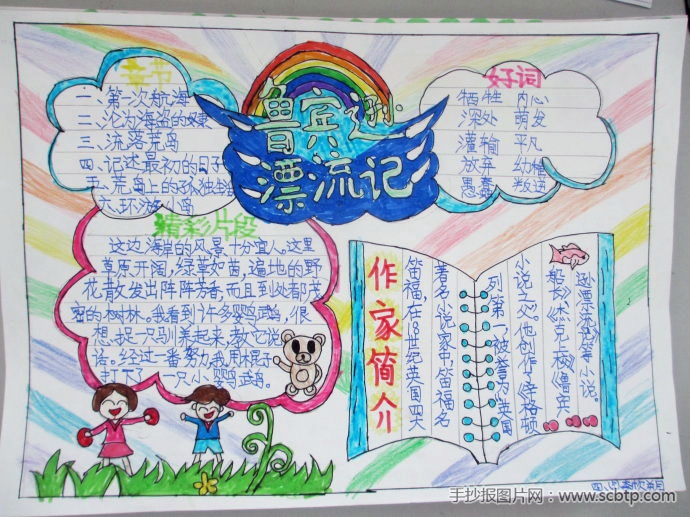 章节
一、第一次航海
二、沦为海盗的奴隶
三、流落荒岛
四、记述最初的日子
五、荒岛上的孤独生活
六、环游小岛
鲁宾逊
漂流记
好词
牺牲 内心
深处 萌发
灌输 平凡
放弃 幼稚
愚蠢 叛逆
精彩片段
这边海岸的风景十分宜人。这里
草原开阔，绿草如茵，遍地的野
花散发出阵阵芳香，而且到处都茂
密的树林。我看到许多鹦鹉，很
想捉一只驯养起来，教它说
话。经过一番努力，我用棍子
打下了一只小鹦鹉。
作家简介
笛福，在18世纪英国四大
著名小说家中，笛福名
列第一，被誉为英国
小说之父。他创作《辛格顿
船长》《杰克上校》《鲁宾
逊漂流记》等小说。
手抄报图片网：www.scbtp.com